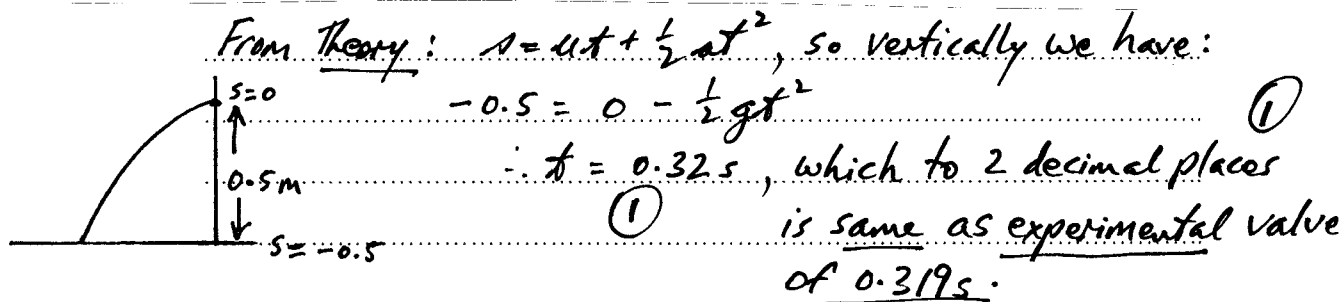 From Theory: s = ut + ½ at², so vertically we have:
s=0
-0.5 = 0 - ½ gt² ①
0.5m
∴ t = 0.32 s, which to 2 decimal places
① is same as experimental value
s=-0.5
of 0.319s.